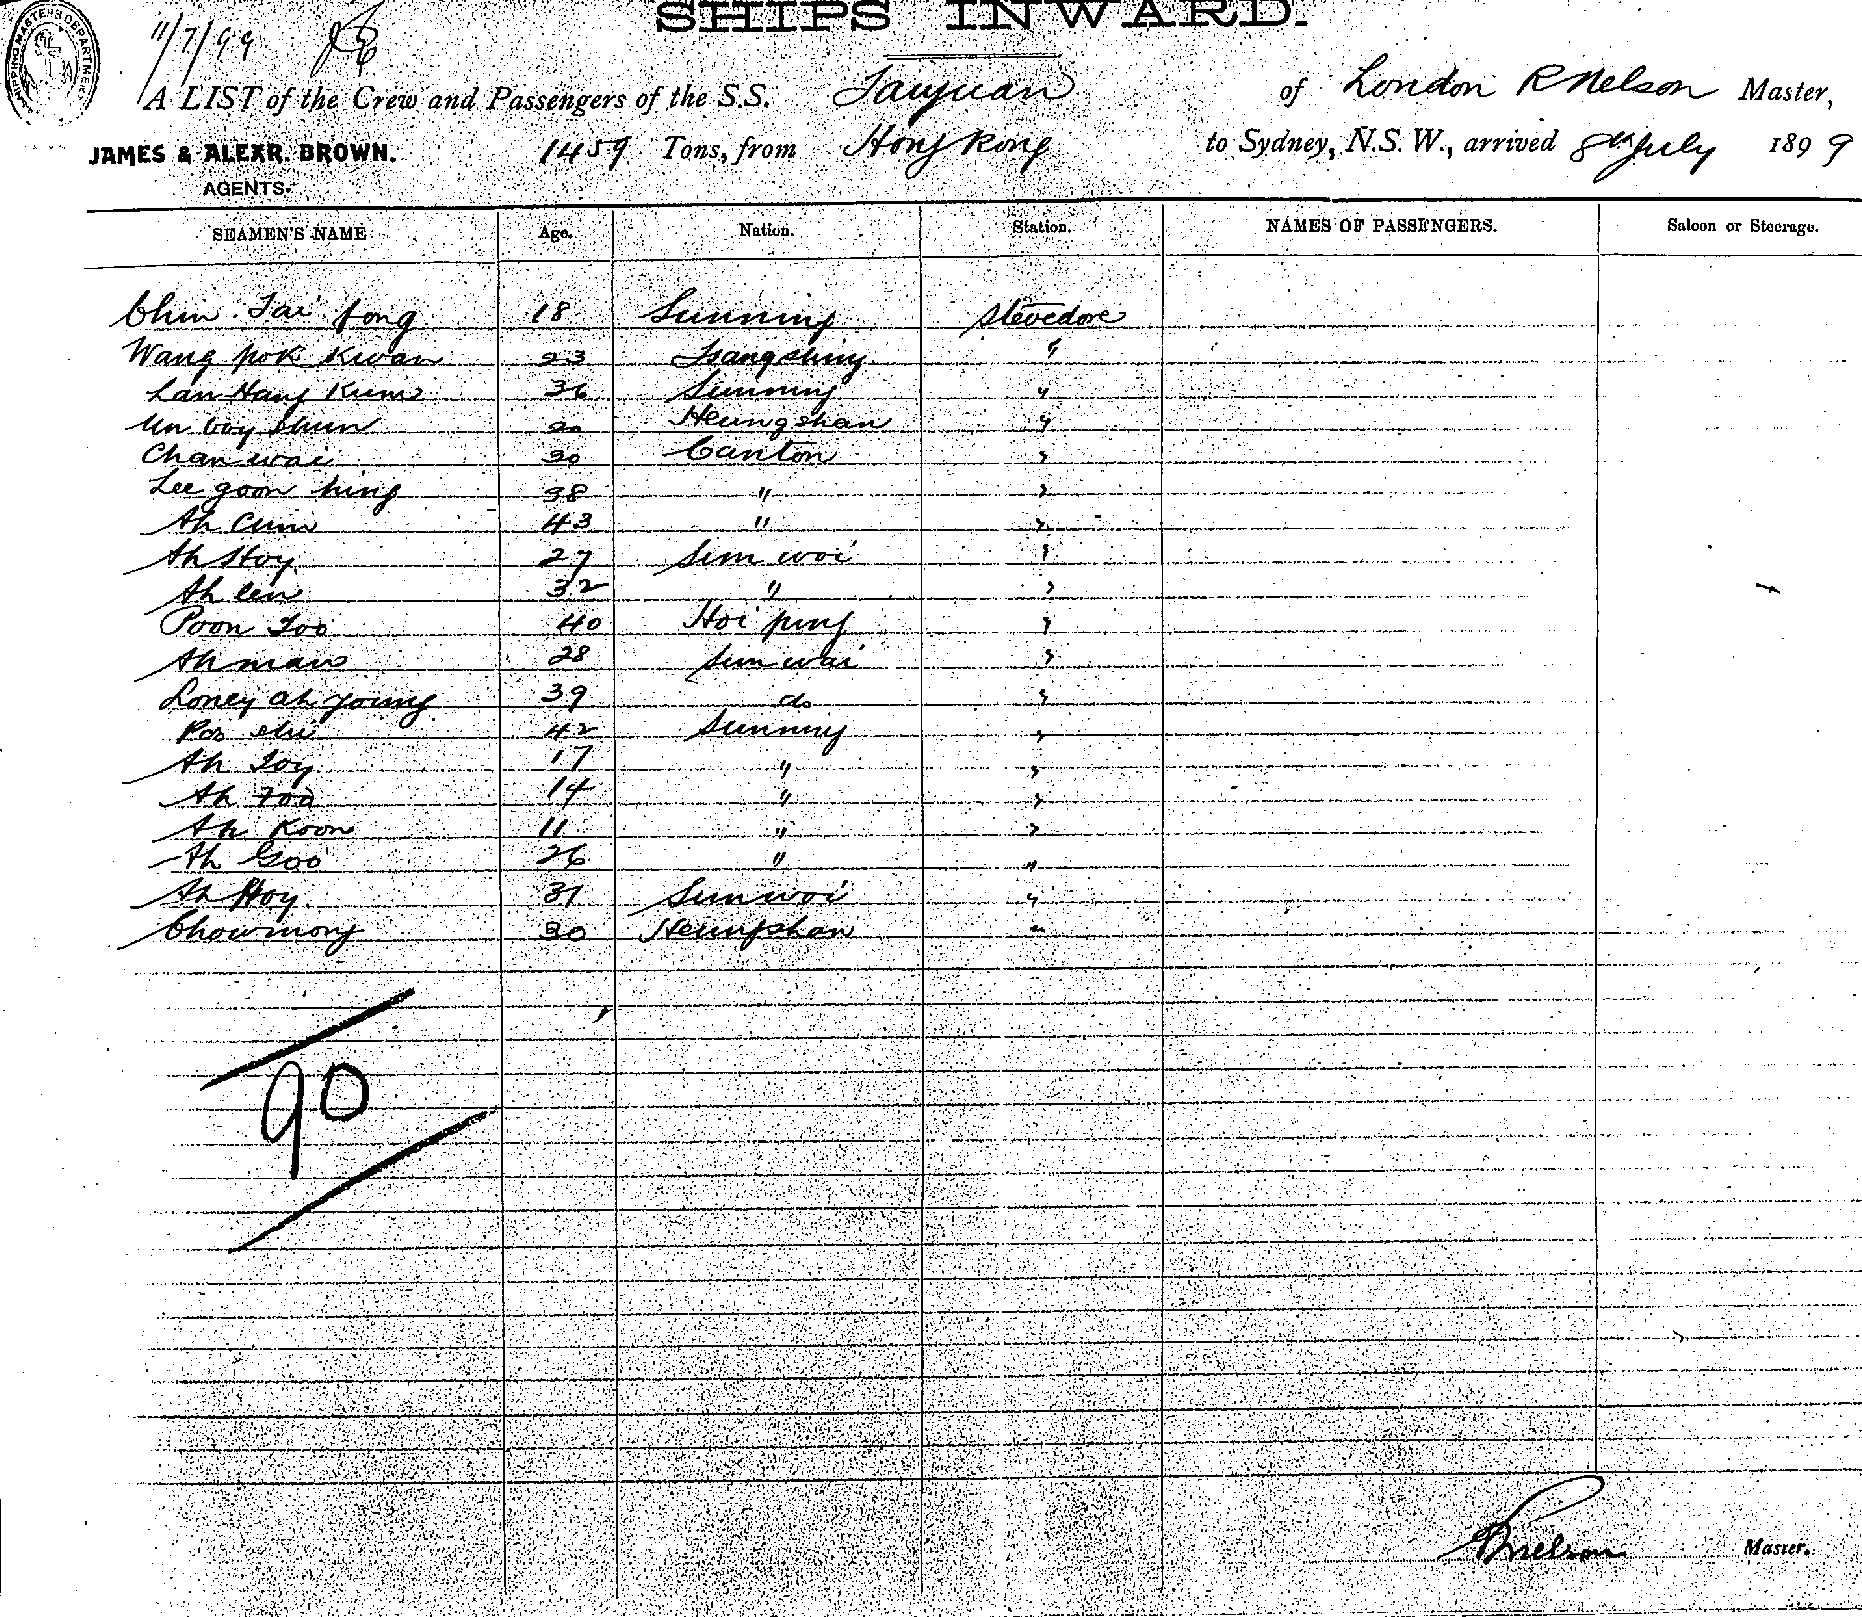 SHIPS INWARD.
11/7/99
A LIST of the Crew and Passengers of the S.S. Taiyuan of London R Nelson Master,
JAMES & ALEXR. BROWN.
AGENTS.
1459 Tons, from Hong Kong to Sydney, N.S.W., arrived 8th July 1899
SEAMEN'S NAME Age. Nation. Station. NAMES OF PASSENGERS. Saloon or Steerage.
Chin Tai fong 18 Sunning Stevedore
Wang pok Kwan 23 Tsangshing "
Lan Hang Kum 36 Sunning "
Un boy Shun 20 Heungshan "
Chan wai 30 Canton "
Lee goon hing 38 " "
Ah Cum 43 " "
Ah Hoy 27 Sun woi "
Ah len 32 " "
Poon Too 40 Hoi ping "
Ah man 28 Sun wai "
Loney ah young 39 do "
42 Sunning "
Ah Toy 17 " "
Ah 14 " "
Ah Koon 11 " "
Ah Goo 26 " "
Ah Hoy 31 Sun woi "
Chow mong 30 Heungshan "
90
R Nelson Master.